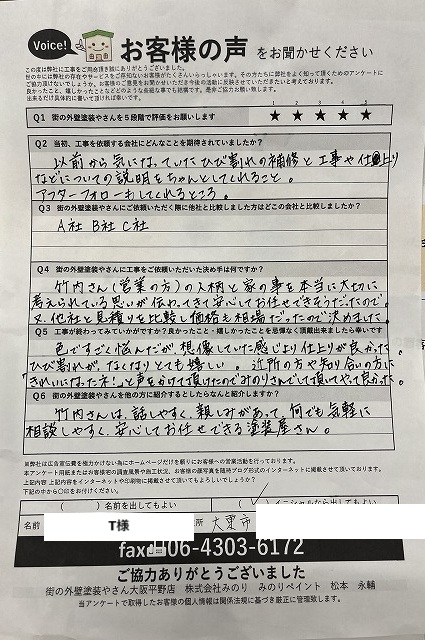 Voice!
お客様の声 をお聞かせください
この度は弊社に工事をご用命頂き誠にありがとうございました。
世の中には弊社の存在やサービスをご存知ないお客様がたくさんいらっしゃいます。その方たちに弊社をよく知って頂くためのアンケートに
ご協力頂けないでしょうか。お客様のご意見をお聞かせいただき今後の活動に反映させていただきたいと考えております。
良かったこと、嬉しかったことなどどのような些細な事でも結構です。是非ご協力お願い致します。
出来るだけ具体的に書いて頂ければ幸いです。
1 2 3 4 5
Q1 街の外壁塗装やさんを5段階で評価をお願いします ★ ★ ★ ★ ★
Q2 当初、工事を依頼する会社にどんなことを期待されていましたか?
以前から気になっていたひび割れの補修と工事や仕上り
などについての説明をちゃんとしてくれること。
アフターフォローもしてくれるところ。
Q3 街の外壁塗装やさんにご依頼いただく際に他社と比較しました方はどこの会社と比較しましたか?
A社 B社 C社
Q4 街の外壁塗装やさんに工事をご依頼いただいた決め手は何ですか?
竹内さん(営業の方)の人柄と家の事を本当に大切に
考えられている思いが伝わってきて安心してお任せできそうだったので。
又、他社と見積りを比較し価格も相場だったので決めました。
Q5 工事が終わってみていかがですか?良かったこと・嬉しかったことを忌憚なく頂戴出来ましたら幸いです
色ですごく悩んだが、想像していた感じより仕上りが良かった。
ひび割れが、なくなりとても嬉しい。 近所の方や知り合いの方に
「きれいになったネ!」と声をかけて頂けたのでみのりさんでして頂いてやって良かった。
Q6 街の外壁塗装やさんを他の方に紹介するとしたらなんと紹介しますか?
竹内さんは、話しやすく、親しみがあって、何でも気軽に
相談しやすく、安心してお任せできる塗装屋さん。
※弊社は広告宣伝費を極力かけない為にホームページだけを頼りにお客様への営業活動を行っております。
本アンケート用紙またはお客様宅の調査風景や自工状況、お客様の顔写真を随時ブログ形式のインターネットに掲載させて頂いております。
上記内容 上記内容をインターネットや印刷物に掲載させて頂いてもよろしいでしょうか?
下記の中から〇印をお付けください。
( ) 名前を出してもよい ( ✓ ) イニシャルなら出してもよい
名前 T様 所 大東市
fax 06-4303-6172
ご協力ありがとうございました
街の外壁塗装やさん大阪平野店 株式会社みのり みのりペイント 松本 永輔
当アンケートで取得したお客様の個人情報は関係法規に基づき厳正に管理致します。